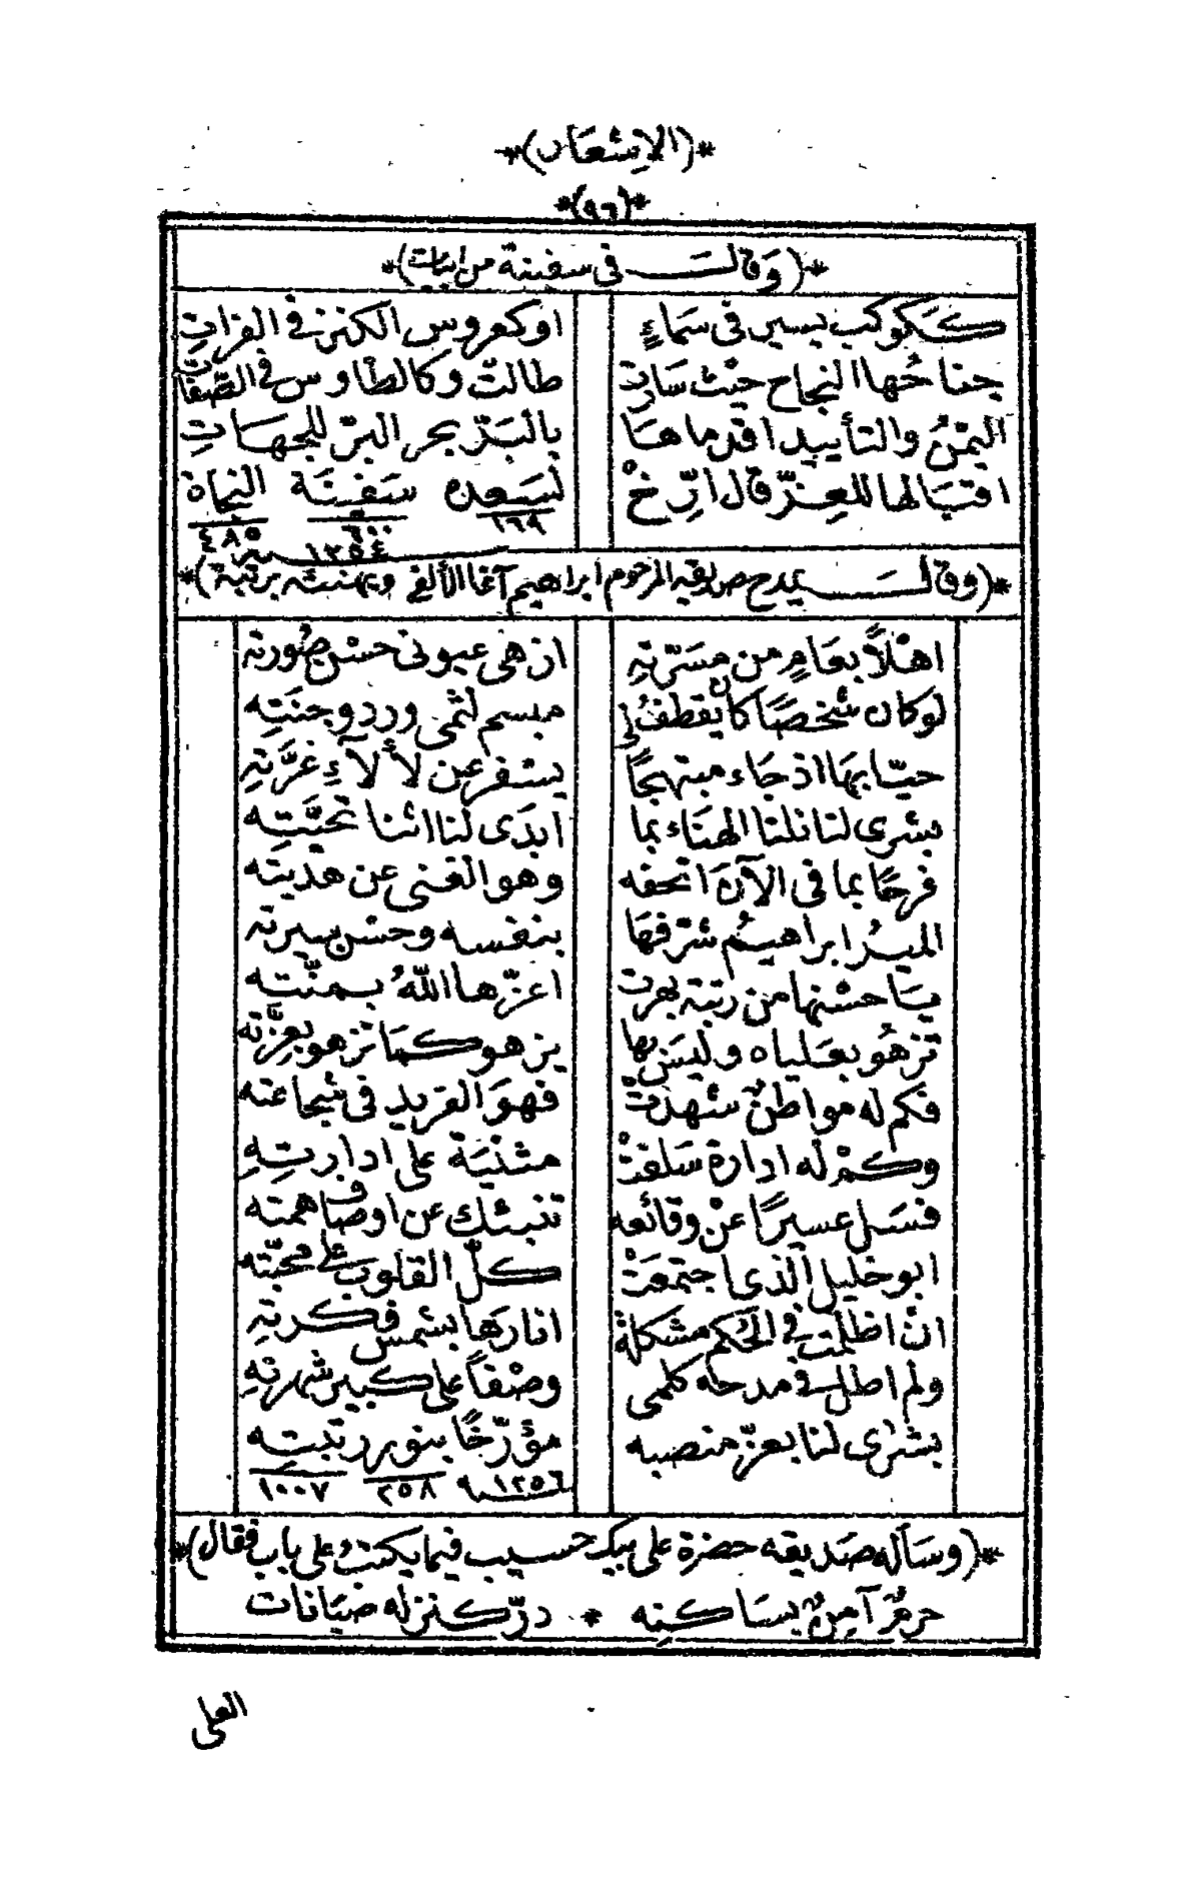 *(الإشعار)*
*(٩٦)*
*(وقالــــــ في سفينة من ابيات)*
ككوكب يسير في سماءٍ اوكعروس الكنز في الفرات
جناحُها النجاح حيْث سارت طالتْ وكالطاوس في الصّفات
اليمْنُ والتأييد اقدماها بالبَرّ بحر البرّ للجهاتِ
اقبَالها للعِزّ قال ارِّخْ لسَعده سَفينَة النجاة
١٦٩ ٦٠٠ ٤٨٥
سنة ١٢٥٤
*(وقالــــــ يمدح صديقه المرحوم ابراهيم آغا الألفي ويهنئه برتبة)*
اهْلاً بعَامٍ من مسَرّتهِ ازهى عيونى حسْن صُورته
لوكان شخصًا كان يقطفُ لى مبسم لثمى ورد وجنَتِه
حيّا بها اذ جَاء مبتهجًا يسْفر عن لألآءِ غرَّتهِ
بشرى لنا نلنا الهناء بما ابدَى لنا اثنا تحيَّتِه
فرحًا بما فى الآن اتحفه وهو الغنى عن هديته
الميرُ ابراهيمُ شرّفهَا بنفسه وحسْن سيرته
يَا حسْنها من رتبة بهرت اعزّها اللّهُ بمنّته
تزهُو بعَلياه وليسَ بها يزهو كمَا تزهو بعِزَّته
فكم له مواطنٌ شهدَتْ فهوَ الفريد فى شجاعته
وكمْ له ادارة سَلفتْ مثنيَة على ادارتِهِ
فسَل عسيرًا عنْ وقائعه تنبئك عن اوصَاف همته
ابو خليل الّذى اجتمعَتْ كلّ القلوب على محبّته
انْ اظلمت في الحُكم مشكلة انارهَا بشمس فكرتهِ
ولم اطل في مدحه كلمى وصْفاً على كبير شهرتهِ
بشرٰى لنا بعزّ منصبه مؤرّخًا بنور رتبتِه
سنة ١٢٥٦ ٢٥٨ ١٠٠٧
*(وسأله صَديقه حضرة على بيك حسيب فيما يكتبُ على باب فقال)*
حرمٌ آمِنٌ بسَاكنه * درّ كنز له ضيَانات
العلى